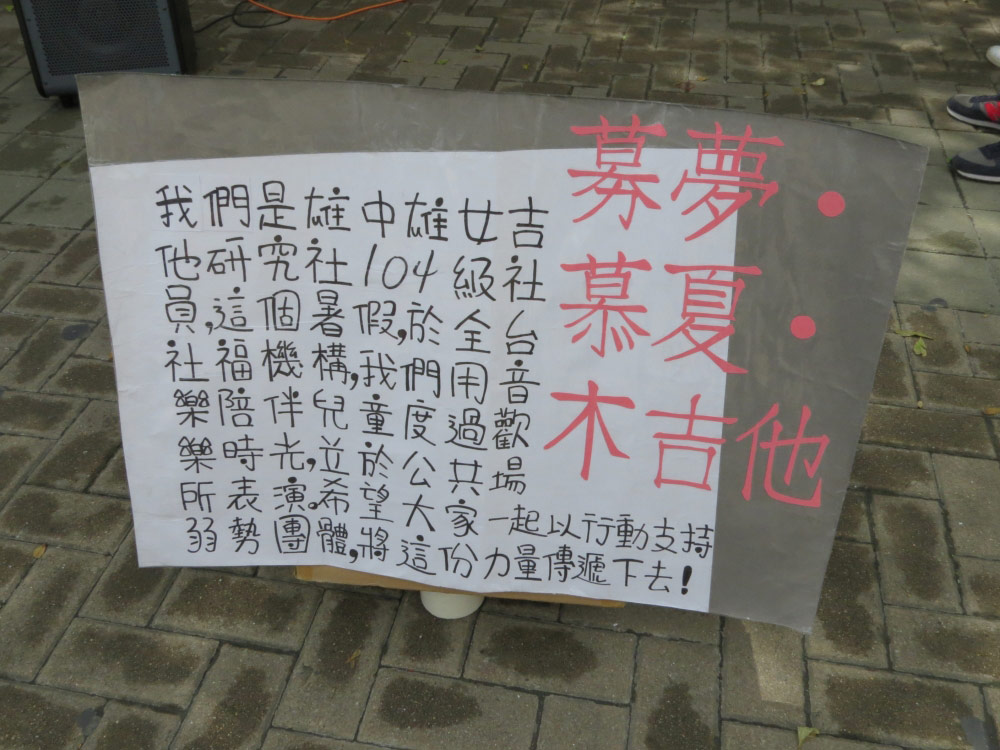 募夢・
慕夏・
木吉他
我們是雄中雄女吉
他研究社104級社
員,這個暑假,於全台
社福機構,我們用音
樂陪伴兒童度過歡
樂時光,並於公共場
所表演.希望大家一起以行動支持
弱勢團體,將這份力量傳遞下去!